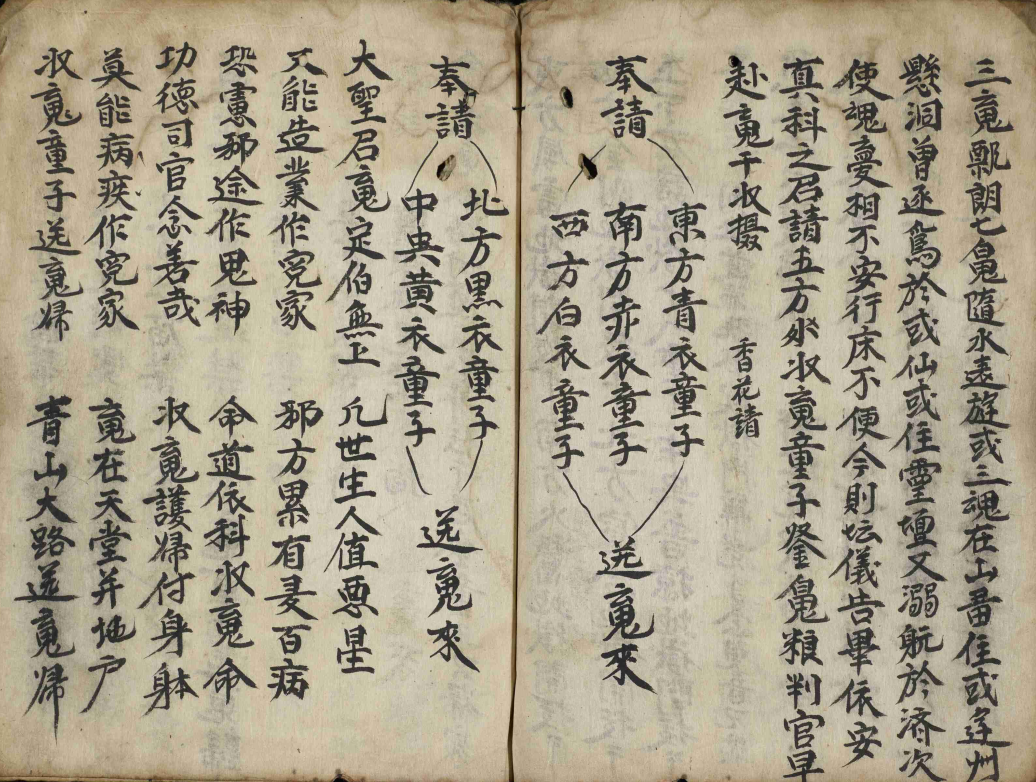 三䰟飄朗七魄隨水遠遊或三魂在山畨住或逢州
懸洞曾逐於或仙或住靈壇又溺於济次
使魂憂相不安行床不便今則坛儀告畢依安
真科之召請五方收䰟童子魄粮判官早
赴䰟千收摄 香花請
奉請
東方青衣童子
南方赤衣童子
西方白衣童子
送䰟來
奉請
北方黑衣童子
中央黄衣童子
送䰟來
大聖召䰟定伯無上 凡世生人值惡星
又能造業作寃家 邪方累有百病
恐憲邪途作鬼神 命道依科收䰟命
功德司官念善哉 收䰟護歸付身躰
莫能病疾作寃家 䰟在天堂并地户
收䰟童子送䰟歸 青山大路送䰟歸